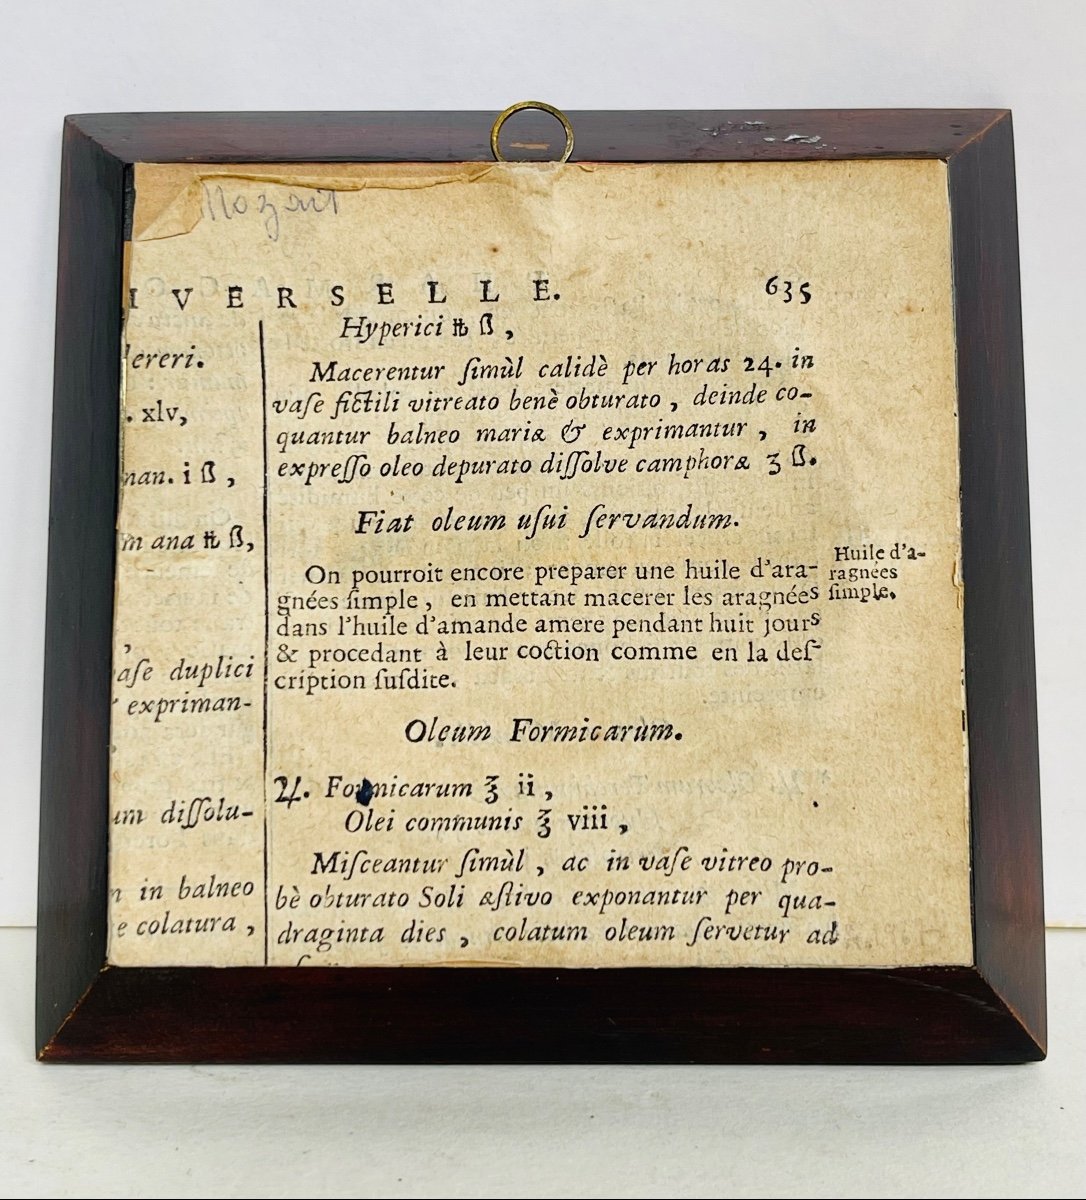 Mozart
IVERSELLE. 635
lereri.
. xlv,
man. i ß,
m ana ℔ ß,
,
aſe duplici
expriman-
um diſſolu-
n in balneo
e colatura,
Hyperici ℔ ß,
Macerentur ſimùl calidè per horas 24. in
vaſe fictili vitreato benè obturato, deinde co-
quantur balneo mariæ & exprimantur, in
expreſſo oleo depurato diſſolve camphoræ ʒ ß.
Fiat oleum uſui ſervandum.
On pourroit encore preparer une huile d'ara-
gnées ſimple, en mettant macerer les aragnées
dans l'huile d'amande amere pendant huit jours
& procedant à leur coction comme en la deſ-
cription ſuſdite.
Huile d'a-
ragnées
ſimple.
Oleum Formicarum.
♃. Formicarum ℥ ii,
Olei communis ℥ viii,
Miſceantur ſimùl, ac in vaſe vitreo pro-
bè obturato Soli æſtivo exponantur per qua-
draginta dies, colatum oleum ſervetur ad